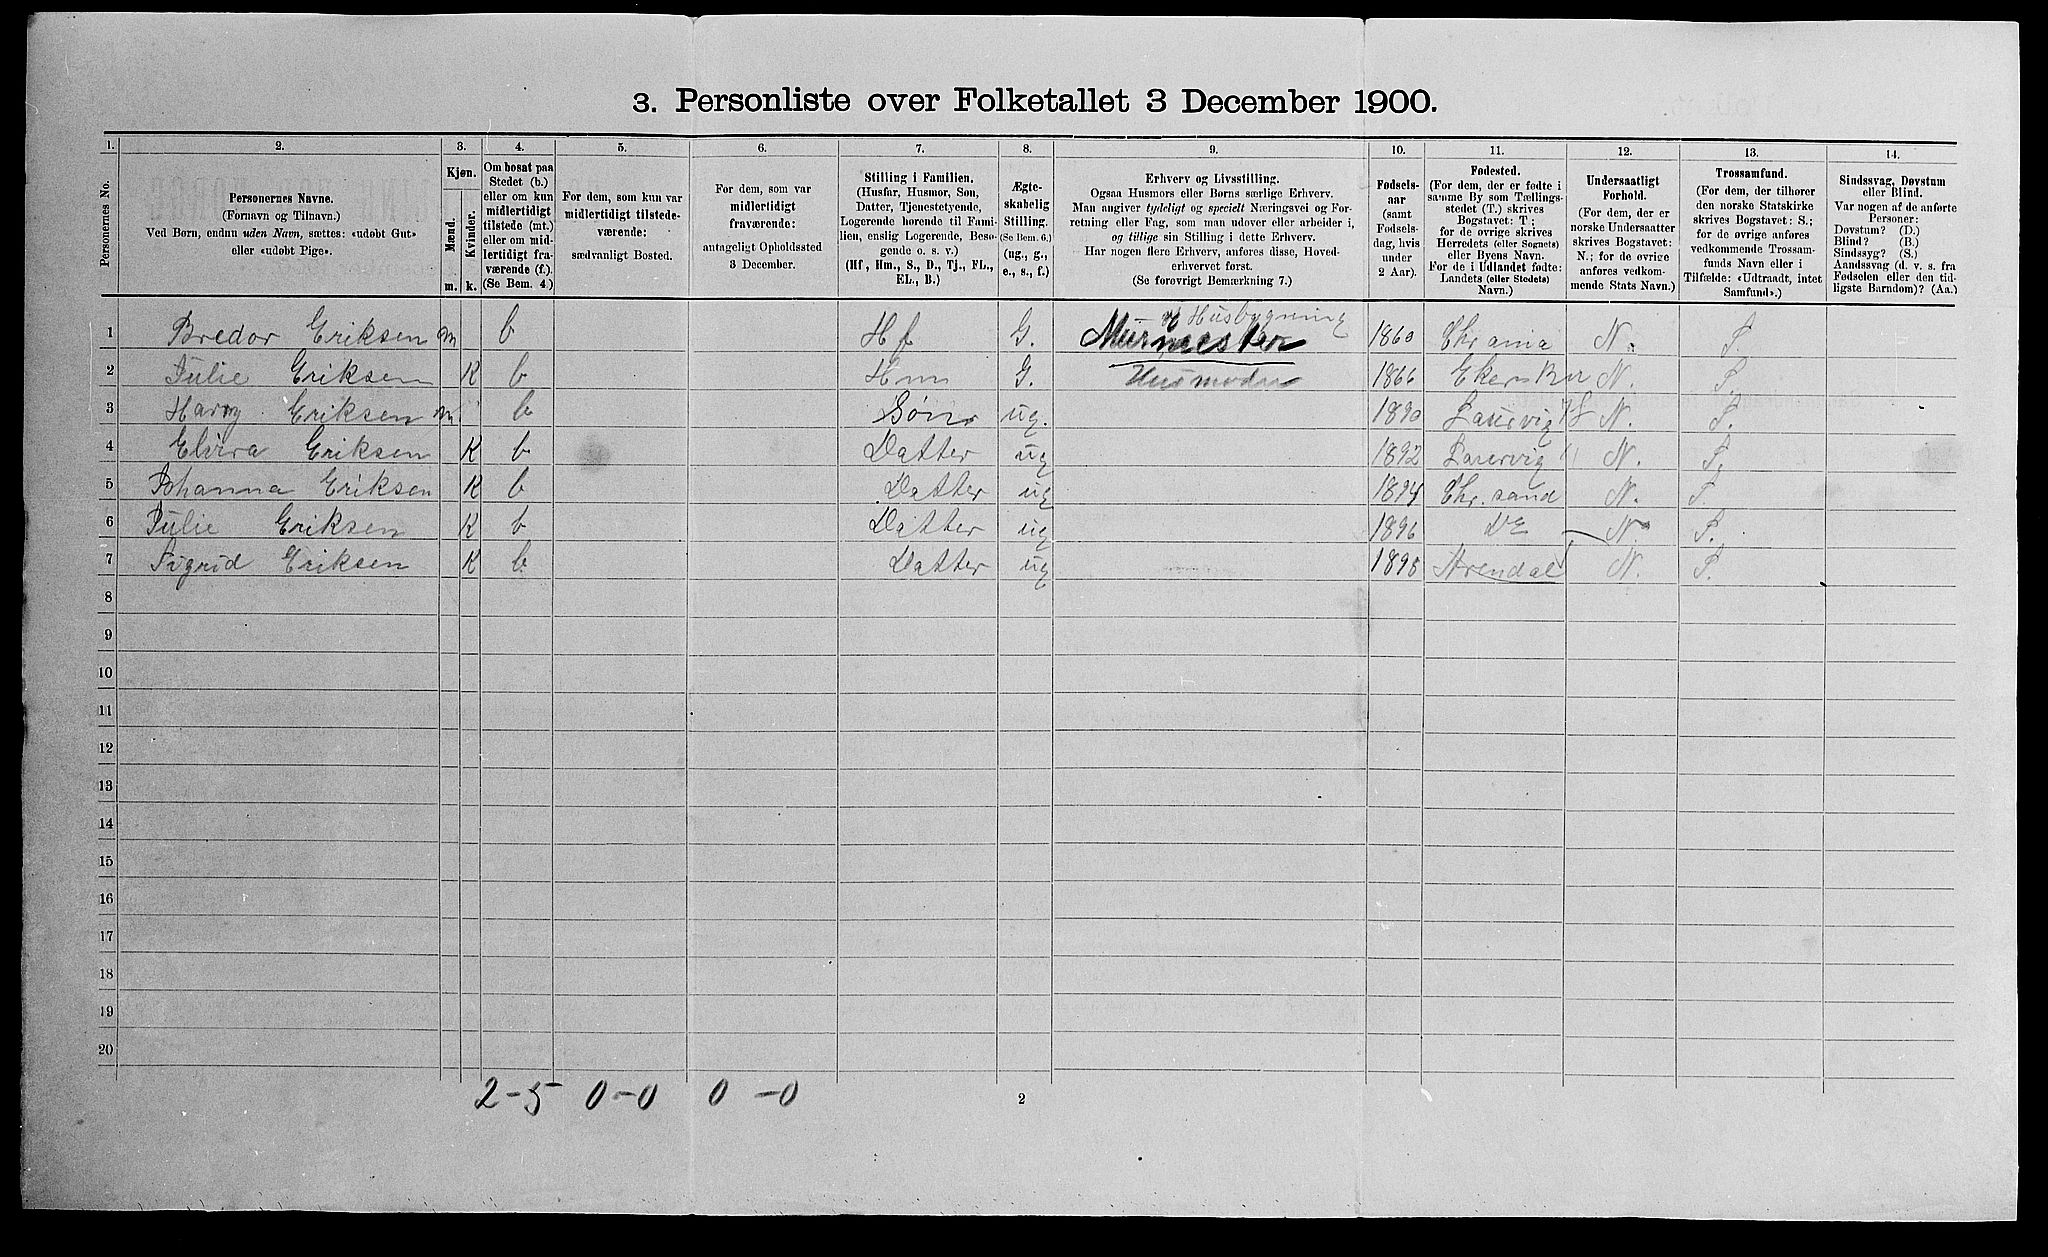 3. Personliste over Folketallet 3 December 1900.
1. 2. 3. 4. 5. 6. 7. 8. 9. 10. 11. 12. 13. 14.
Personernes No.
Personernes Navne.
(Fornavn og Tilnavn.)
Ved Børn, endnu uden Navn, sættes: «udøbt Gut»
eller «udøbt Pige».
Kjøn.
Mænd.
Kvinder.
m. k.
Om bosat paa
Stedet (b.)
eller om kun
midlertidigt
tilstede (mt.)
eller om mid-
lertidigt fra-
værende (f.).
(Se Bem. 4.)
For dem, som kun var
midlertidigt tilstede-
værende:
sædvanligt Bosted.
For dem, som var
midlertidigt
fraværende:
antageligt Opholdssted
3 December.
Stilling i Familien.
(Husfar, Husmor, Søn,
Datter, Tjenestetyende,
Logerende hørende til Fami-
lien, enslig Logerende, Besø-
gende o. s. v.)
(Hf, Hm., S., D., Tj., FL.,
EL., B.)
Ægte-
skabelig
Stilling.
(Se Bem. 6.)
(ug., g.,
e., s., f.)
Erhverv og Livsstilling.
Ogsaa Husmors eller Børns særlige Erhverv.
Man angiver tydeligt og specielt Næringsvei og For-
retning eller Fag, som man udøver eller arbeider i,
og tillige sin Stilling i dette Erhverv.
Har nogen flere Erhverv, anføres disse, Hoved-
erhvervet først.
(Se forøvrigt Bemærkning 7.)
Fødsels-
aar
(samt
Fødsels-
dag, hvis
under
2 Aar).
Fødested.
(For dem, der er fødte i
samme By som Tællings-
stedet (T.) skrives
Bogstavet: T ;
for de øvrige skrives
Herredets (eller Sognets)
eller Byens Navn.
For de i Udlandet fødte:
Landets (eller Stedets)
Navn.)
Undersaatligt
Forhold.
(For dem, der er
norske Undersaatter
skrives Bogstavet:
N.; for de øvrige
anføres vedkom-
mende Stats Navn.)
Trossamfund.
(For dem, der tilhører
den norske Statskirke
skrives Bogstavet: S.;
for de øvrige anføres
vedkommende Trossam-
funds Navn eller i
Tilfælde: «Udtraadt, intet
Samfund».)
Sindssvag, Døvstum
eller Blind.
Var nogen af de anførte
Personer:
Døvstum? (D.)
Blind? (B.)
Sindssyg? (S.)
Aandssvag (d. v. s. fra
Fødselen eller den tid-
ligste Barndom)? (Aa.)
Husbygning
1 Bredor Eriksen m b Hf G. Murmester 1860 Chr ania N. S
2 Julie Eriksen K b Hm G. Husmoder 1866 N. S.
3 Harry Eriksen m b Søn ug. 1890 Laurvig N. S.
4 Elvira Eriksen K b Datter ug 1892 Laurvig N. S.
5 Johanna Eriksen K b Datter ug 1894 Chr. sand N. S.
6 Julie Eriksen K b Datter ug 1896 N. S.
7 Sigrid Eriksen K b Datter ug 1898 Arendal N. S.
8
9
10
11
12
13
14
15
16
17
18
19
20
2-5 0-0 0-0
2